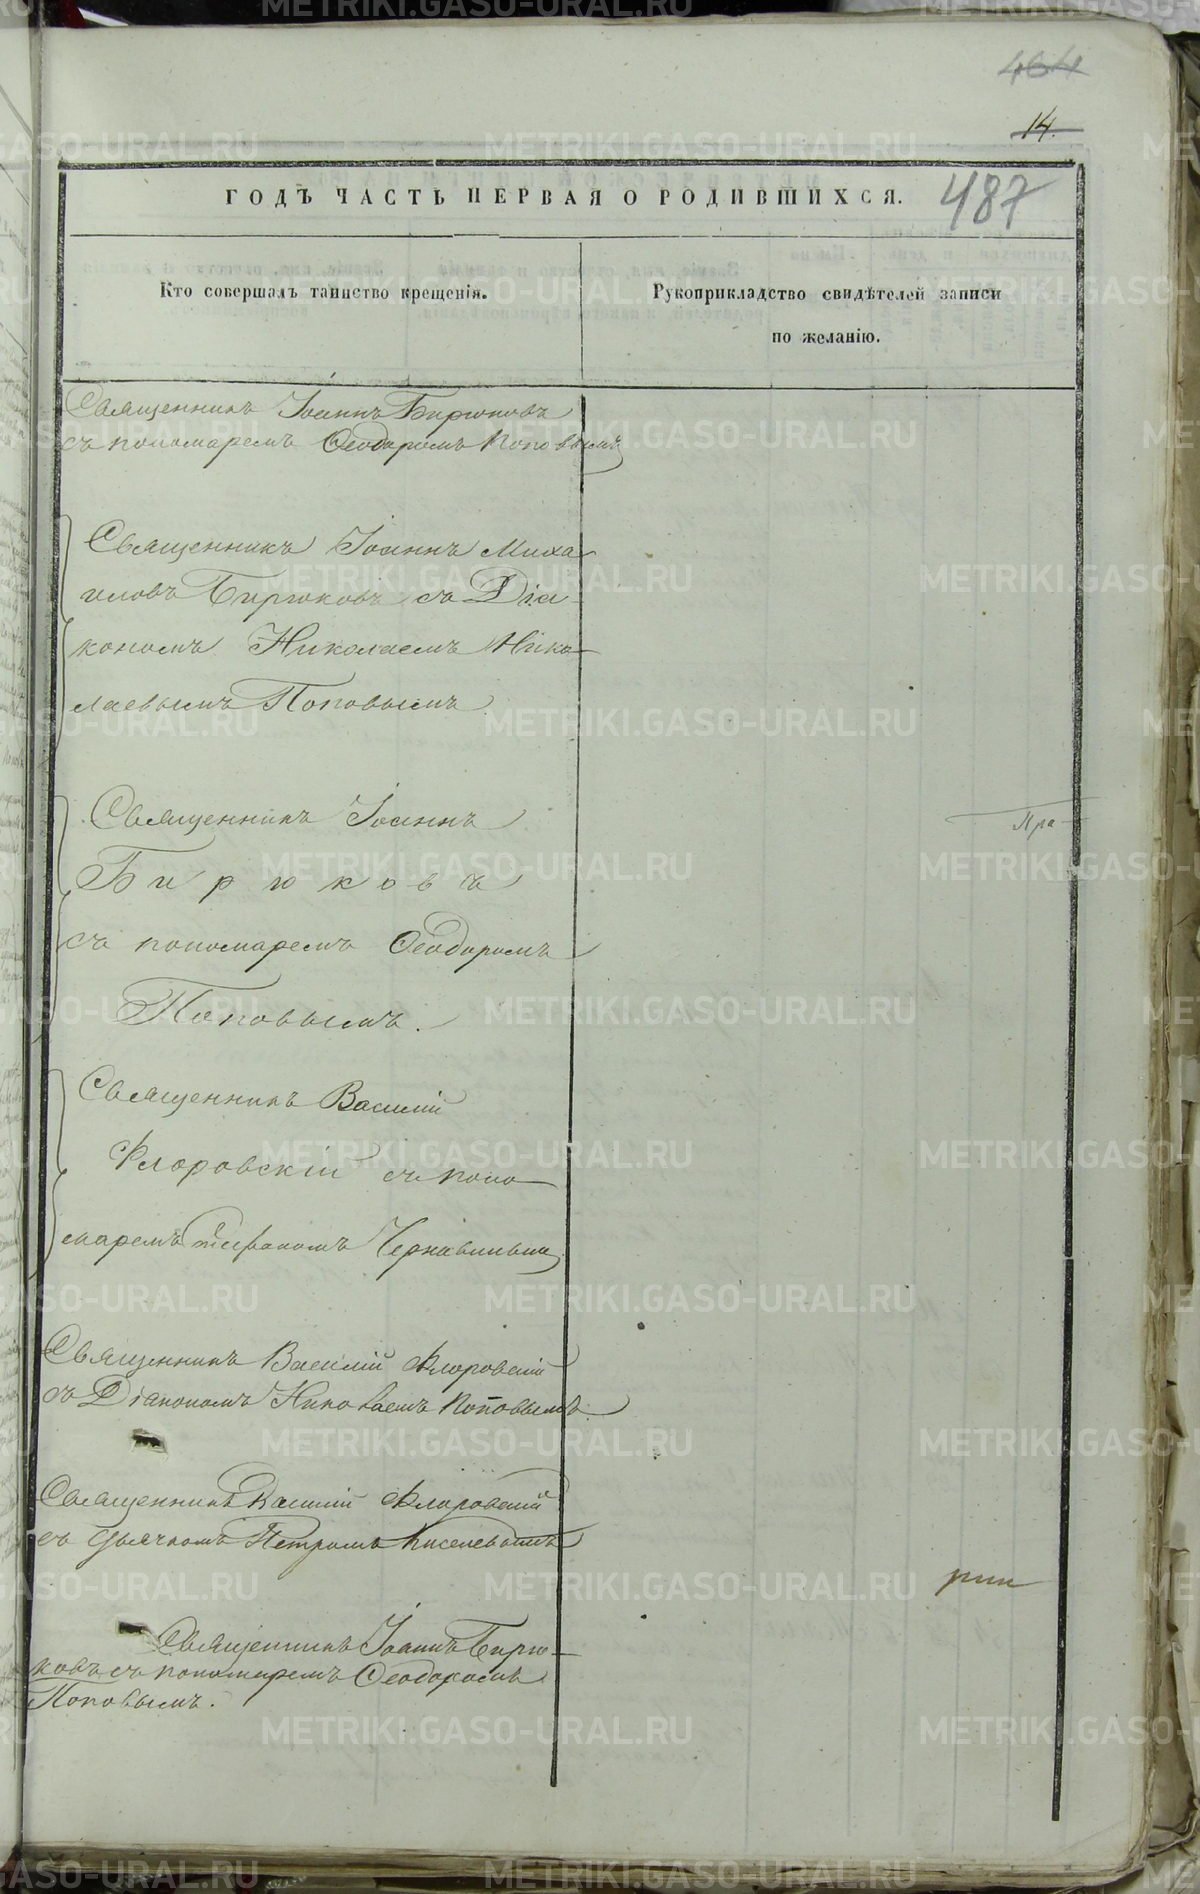 464
14.
487
ГОДЪ ЧАСТЬ ПЕРВАЯ О РОДИВШИХСЯ.
Кто совершалъ таинство крещенія.
Рукоприкладство свидѣтелей записи
по желанію.
Священникъ Іоаннъ Бирюковъ
съ пономаремъ Ѳеодоромъ Поповымъ
Священникъ Іоаннъ Миха-
иловъ Бирюковъ съ Діа-
кономъ Николаемъ Нико-
лаевымъ Поповымъ
Священникъ Іоаннъ
Бирюковъ
съ пономаремъ Ѳеодоромъ
Поповымъ.
Священникъ Василій
Флоровскій съ поно-
маремъ Чернавиным
Священникъ Василій Флоровскій
съ Діакономъ Николаемъ Поповымъ
Священникъ Василій Флоровскій
съ дьячкомъ Петромъ Киселевымъ
Священникъ Іоаннъ Бирю-
ковъ съ пономаремъ Ѳеодоромъ
Поповымъ.
Пра-
METRIKI.GASO-URAL.RU